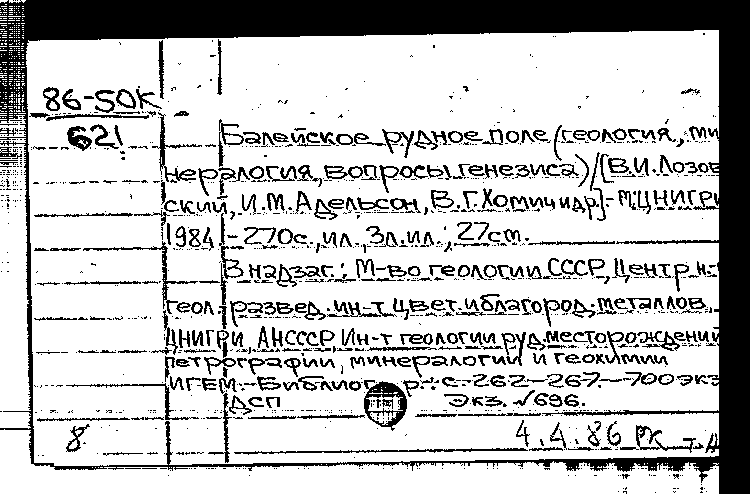 86-50К
621
Балейское рудное поле (геология, ми
нералогия, вопросы генезиса) / [В.И. Лозов
ский, И.М. Адельсон, В.Г. Хомич и др] - М: ЦНИГРИ
1984 - 270с., ил., 3л. ил.; 27см.
В надзаг.: М-во геологии СССР, Центр н.-
геол. развед. ин-т цвет. и благород. металлов
ЦНИГРИ, АН СССР, Ин-т геологии руд. месторождений
петрографии, минералогии и геохимии
ИГЕМ. - Библиогр.: с. 262-267. - 700 экз
ДСП экз. √696.
8 4.4.86 РК